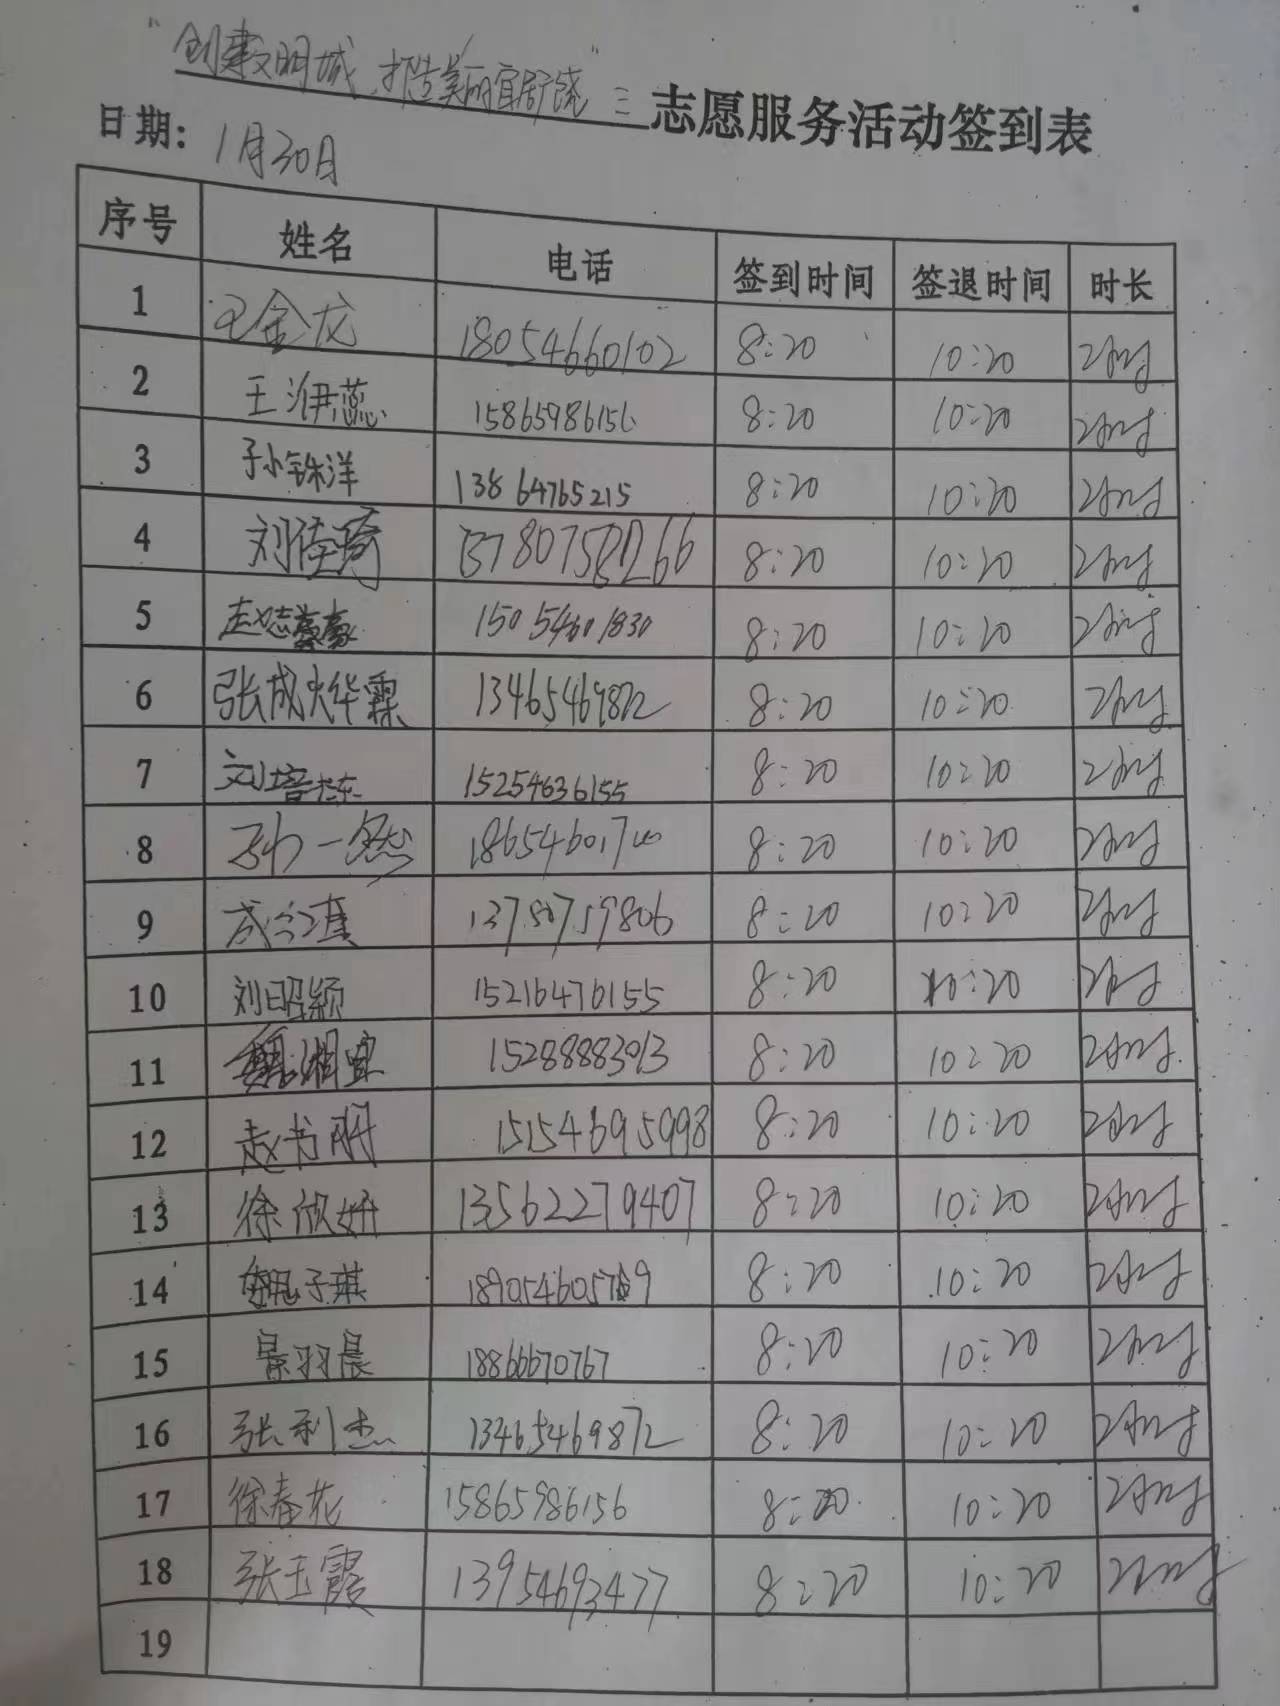 "创建文明城,打造美丽宜居饶"三志愿服务活动签到表
日期: 1月30日
序号 姓名 电话 签到时间 签退时间 时长
1 王金龙 18054660102 8:20 10:20 2小时
2 王泇蕊 15865986156 8:20 10:20 2小时
3 孙铢洋 13864765215 8:20 10:20 2小时
4 刘佳琦 8:20 10:20 2小时
5 赵志豪 15054601830 8:20 10:20 2小时
6 张成烨霖 13465469872 8:20 10:20 2小时
7 刘培栋 15254636155 8:20 10:20 2小时
8 孙一然 8:20 10:20 2小时
9 8:20 10:20 2小时
10 刘昭颖 15216476155 8:20 10:20 2小时
11 魏湘宜 15288883013 8:20 10:20 2小时
12 赵书刚 15154695998 8:20 10:20 2小时
13 徐欣妍 13562279407 8:20 10:20 2小时
14 子琪 8:20 10:20 2小时
15 景羽晨 18866670767 8:20 10:20 2小时
16 张利杰 13465469872 8:20 10:20 2小时
17 徐春花 15865986156 8:20 10:20 2小时
18 张玉霞 13954693477 8:20 10:20 2小时
19